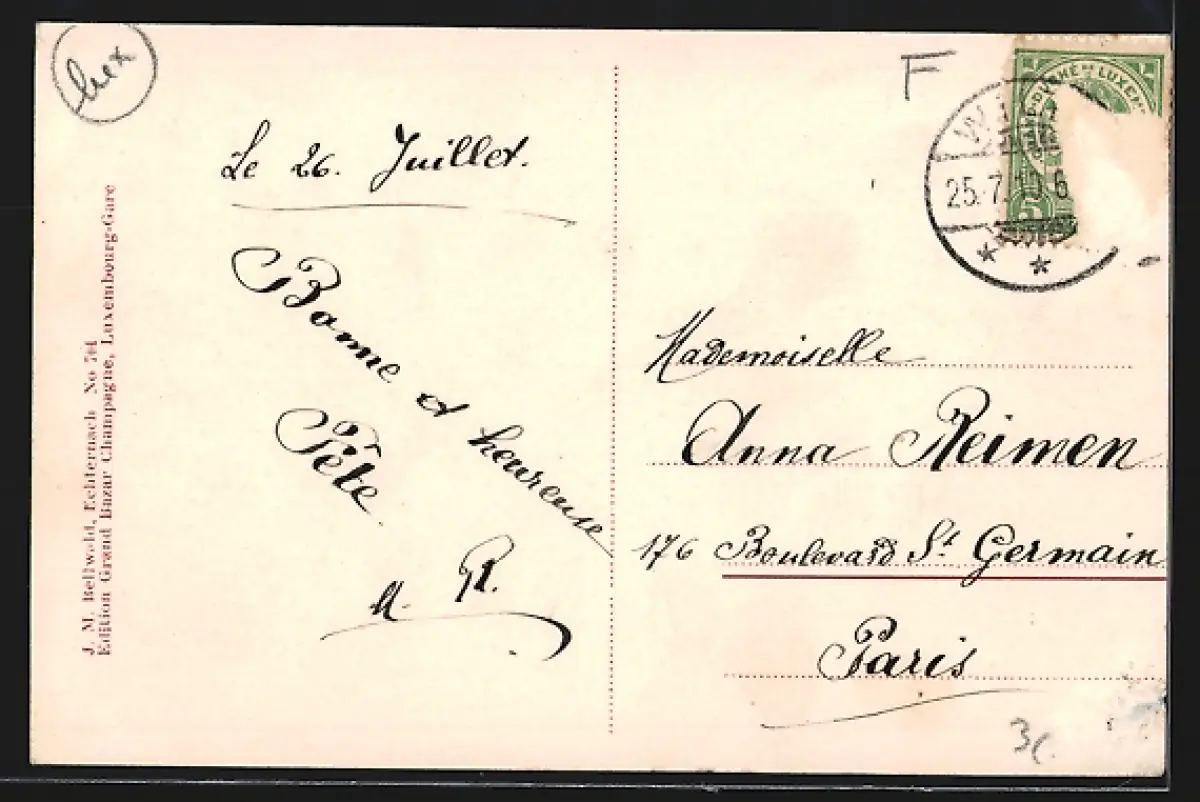 Lux
F
GRAND-DUCHÉ DE LUXEM
5
25.7.10.6
Le 26. Juillet.
Bonne et heureuse
Fête.
A. R.
Mademoiselle
Anna Reimen
176 Boulevard St. Germain
Paris
3
J. M. Bellwald, Echternach No 704
Edition Grand Bazar Champagne, Luxembourg-Gare